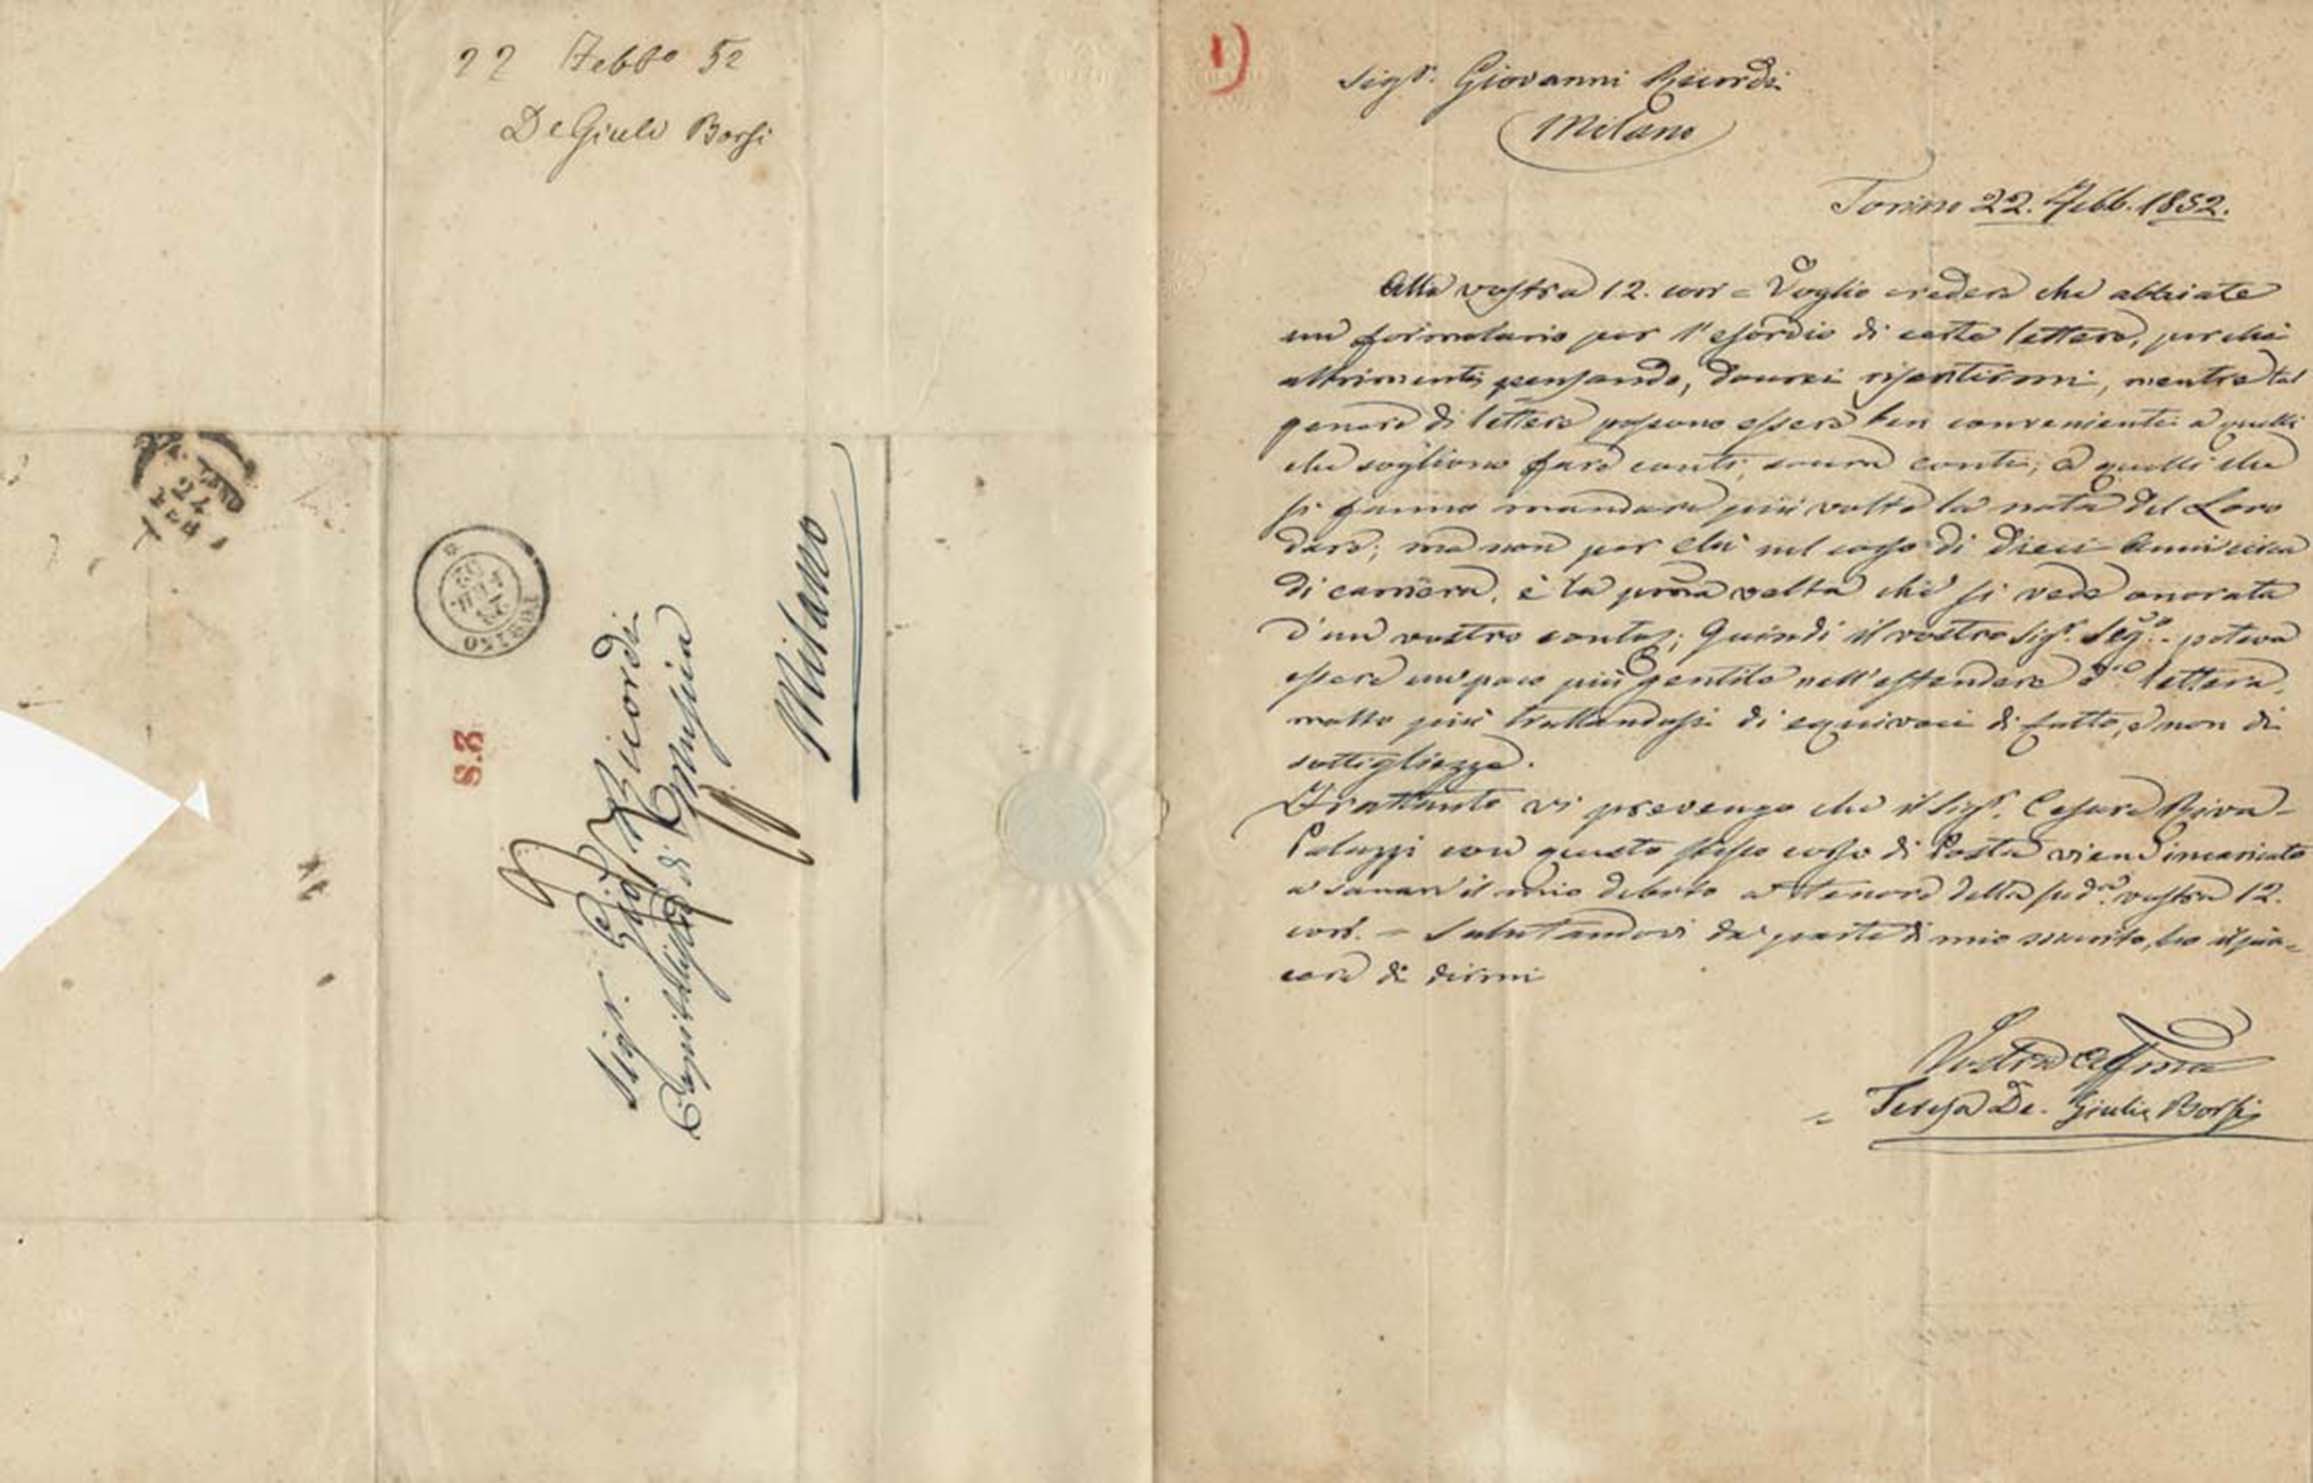 22 Febb.o 52
De Giuli Borsi
24
FEB
TORINO
22 FEB 52
S.3
Sigr. Gio Ricordi
di Musica
Milano
1)
Sigr. Giovanni Ricordi
Milano
Torino 22. Febb. 1852.
Alla vostra 12. corr = Voglio credere che abbiate
un formolario per l'esordio di certe lettere, perchè
altrimenti pensando, dovrei risentirmi, mentre tal
genere di lettere possono essere ben convenienti a quelli
che sogliono fare conti, sovra conti, o quelli che
si fanno mandare più volte la nota del Loro
dare; ma non per chi nel corso di dieci Anni circa
di carriera, è la prima volta che si vede onorata
d'un vostro conto; Quindi il vostro Sigr. Seg.o poteva
essere un poco più gentile nell'estendere d.a lettera,
molto più trattandosi di equivoci di fatto, e non di
sottigliezze.
Frattanto vi prevengo che il Sigr. Cesare Riva-
Palazzi con questo stesso corso di Posta viene incaricato
a sanare il mio debito a tenore della sud.a vostra 12.
corr. = Salutandovi da parte di mio marito, ho il pia-
cere di dirmi
Vostra Aff.ma
= Teresa De. Giuli Borsi